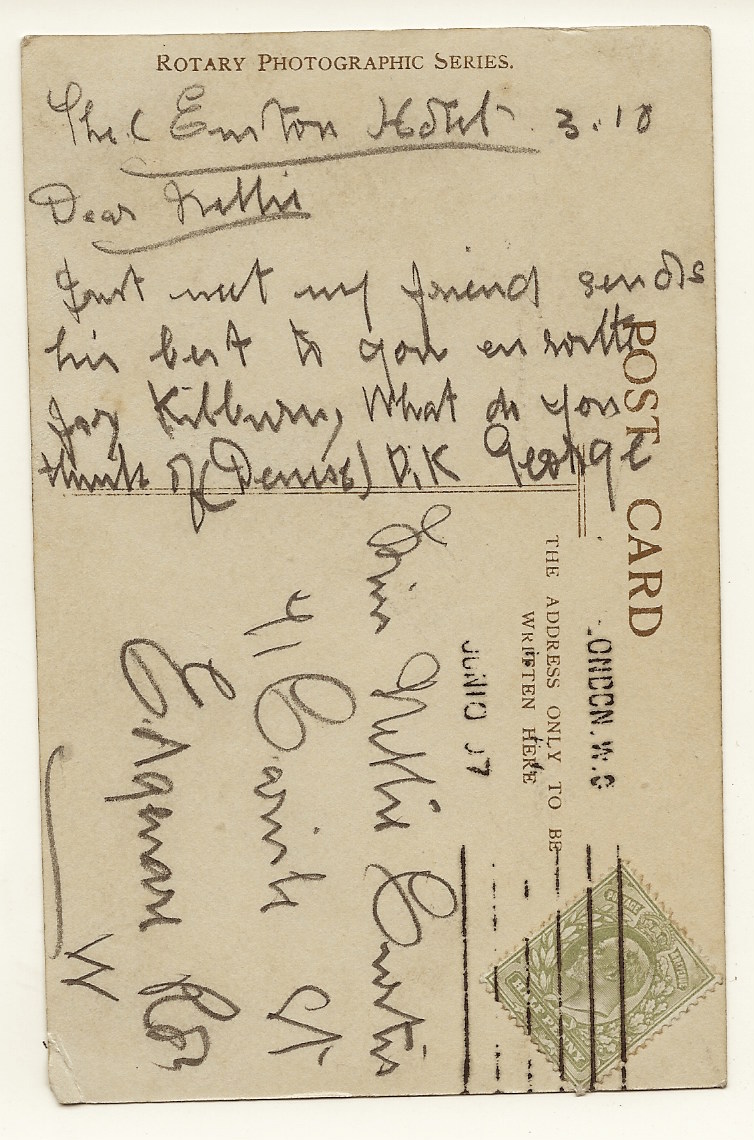 ROTARY PHOTOGRAPHIC SERIES.
The Euston Hotel. 3.10
Dear Nellie
Just met my friend sends
his best to you en route
for Kilburn, What do you
think of (Denise) D.K George
POST CARD
THE ADDRESS ONLY TO BE
WRITTEN HERE
LONDON. W.C
JUN 10 07
Miss Nellie Curtis
41 Carlisle St
Edgware Rd
W
POSTAGE
HALFPENNY